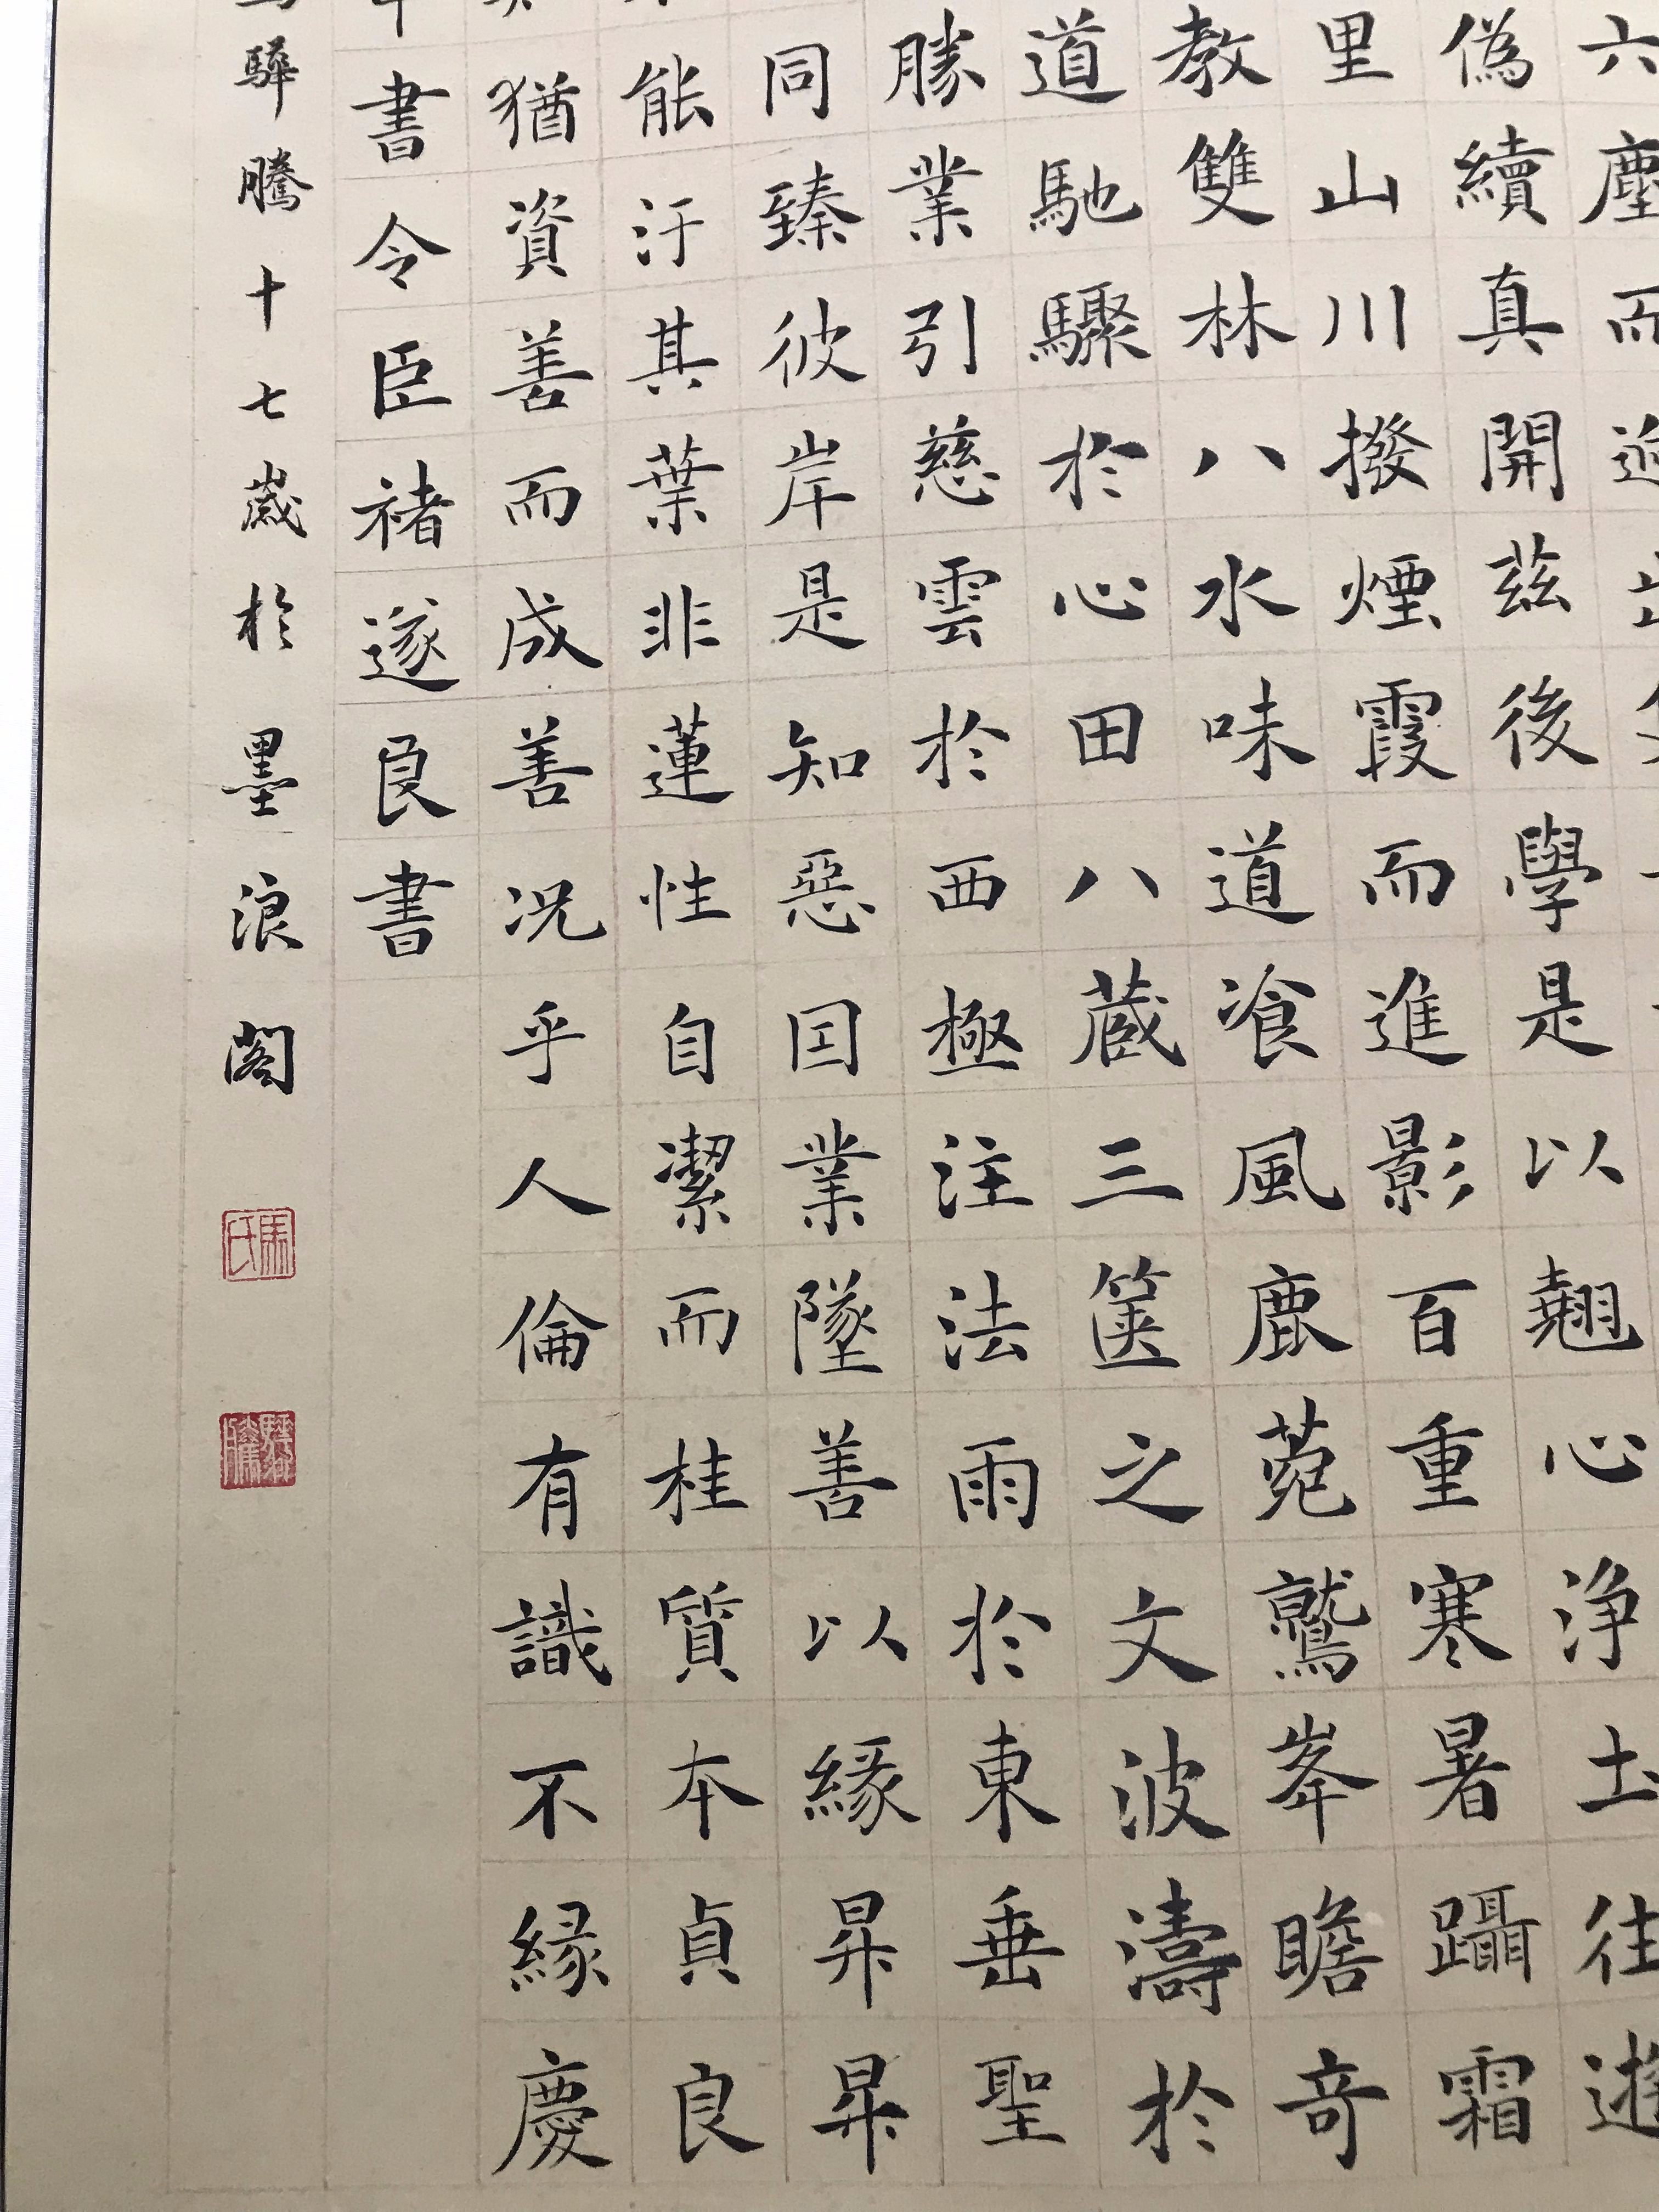 六塵而
偽續真開茲後學是以翹心浄土往遊
里山川撥煙霞而進影百重寒暑躡霜
教雙林八水味道飡風鹿菀鷲峯瞻奇
道馳驟於心田八蔵三篋之文波濤於
勝業引慈雲於西極注法雨於東垂聖
同臻彼岸是知惡因業墜善以緣昇昇
能汙其葉非蓮性自潔而桂質本貞良
猶資善而成善況乎人倫有識不緣慶
書令臣褚遂良書
驊騰十七歲於墨浪閣
馬氏
驊騰